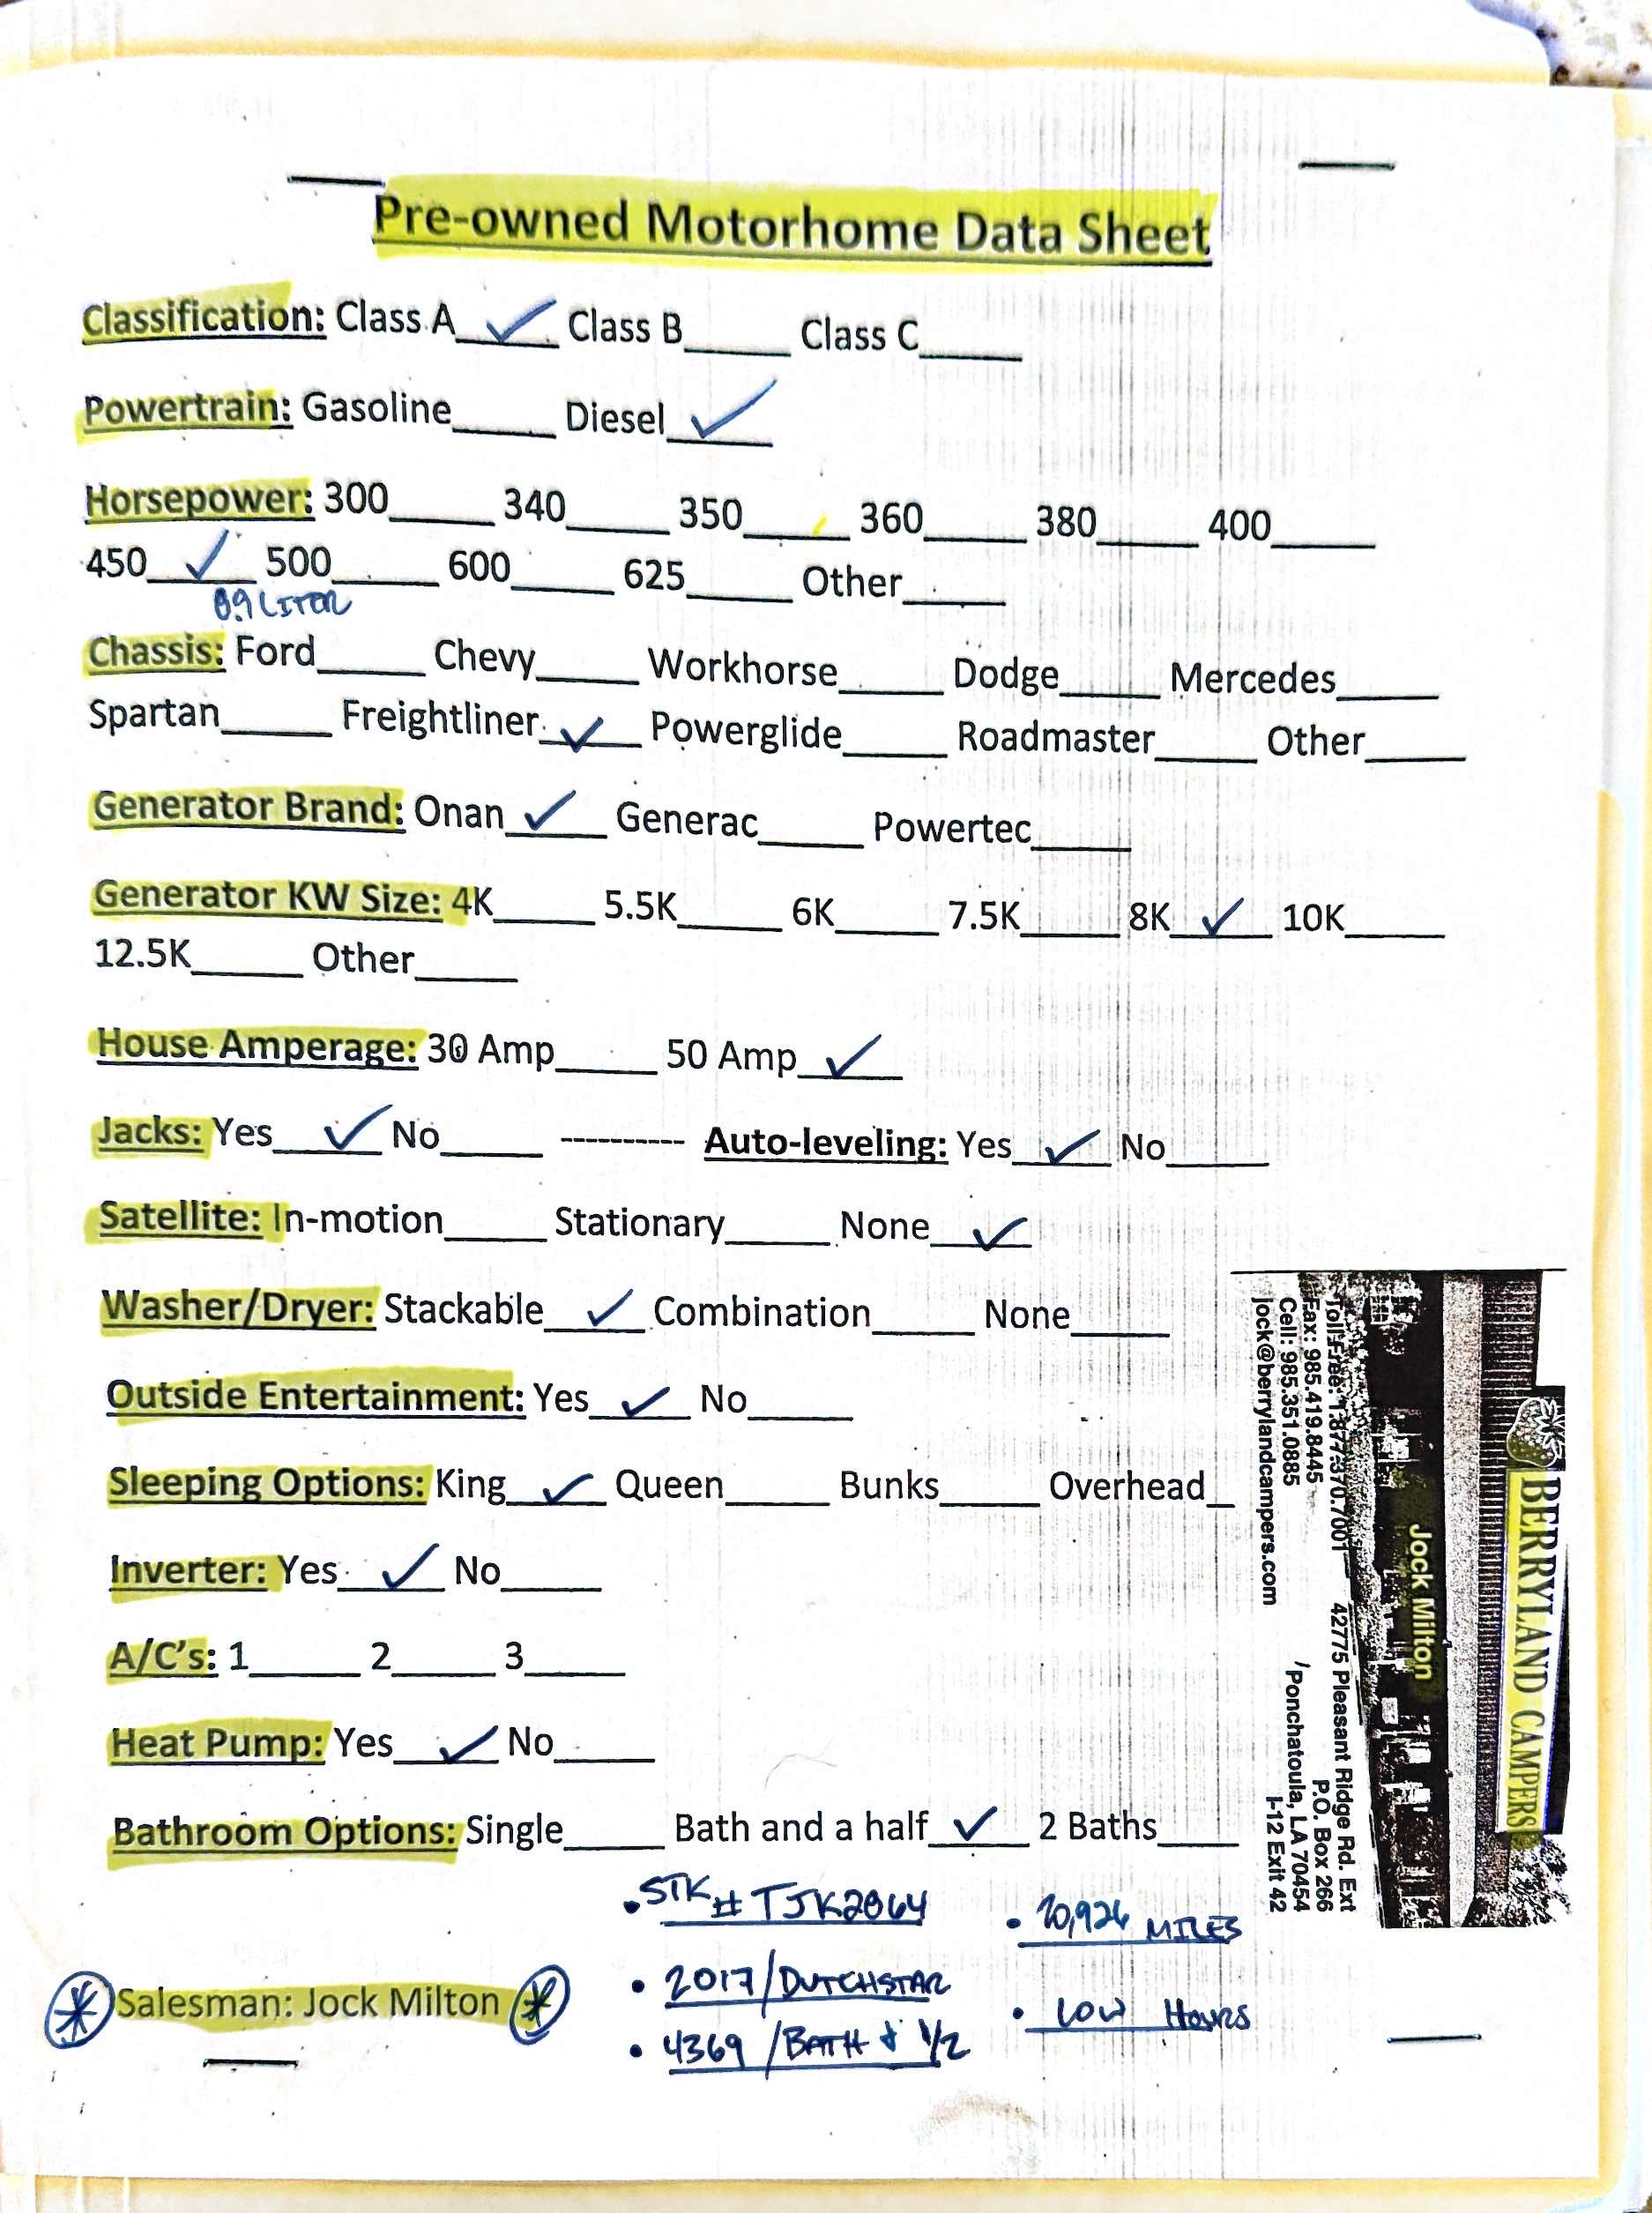 Pre-owned Motorhome Data Sheet
Classification: Class A ✓ Class B_____ Class C_____
Powertrain: Gasoline_____ Diesel ✓
Horsepower: 300_____ 340_____ 350_____ 360_____ 380_____ 400_____
450 ✓ 500_____ 600_____ 625_____ Other_____
8.9 LITER
Chassis: Ford_____ Chevy_____ Workhorse_____ Dodge_____ Mercedes_____
Spartan_____ Freightliner ✓ Powerglide_____ Roadmaster_____ Other_____
Generator Brand: Onan ✓ Generac_____ Powertec_____
Generator KW Size: 4K_____ 5.5K_____ 6K_____ 7.5K_____ 8K ✓ 10K_____
12.5K_____ Other_____
House Amperage: 30 Amp_____ 50 Amp ✓
Jacks: Yes ✓ No_____ ---------- Auto-leveling: Yes ✓ No_____
Satellite: In-motion_____ Stationary_____ None ✓
Washer/Dryer: Stackable ✓ Combination_____ None_____
Outside Entertainment: Yes ✓ No_____
Sleeping Options: King ✓ Queen_____ Bunks_____ Overhead_
Inverter: Yes ✓ No_____
A/C's: 1_____ 2_____ 3_____
Heat Pump: Yes ✓ No_____
Bathroom Options: Single_____ Bath and a half ✓ 2 Baths_____
BERRYLAND CAMPERS
Jock Milton
Toll Free: 1.877.370.7001 42775 Pleasant Ridge Rd. Ext
Fax: 985.419.8445 P.O. Box 266
Cell: 985.351.0885 Ponchatoula, LA 70454
jock@berrylandcampers.com I-12 Exit 42
• STK # TJK2864
• MILES
• 2017/DUTCHSTAR
• LOW HOURS
• 4369/BATH & 1/2
* Salesman: Jock Milton *